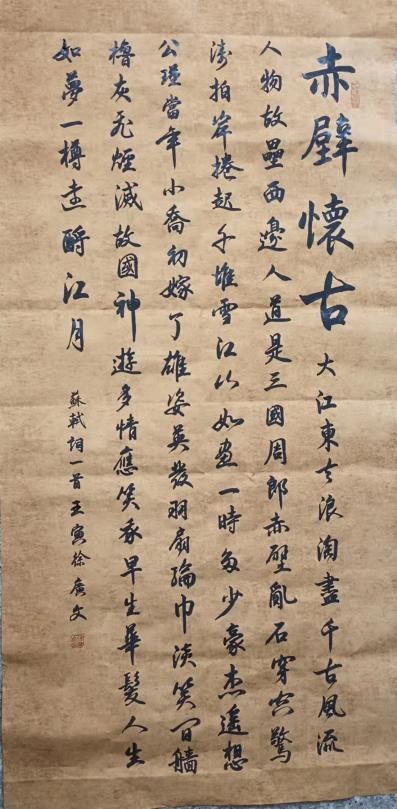 赤壁懷古 大江東去浪淘盡千古風流
人物故壘西邊人道是三國周郎赤壁亂石穿空驚
濤拍岸捲起千堆雪江山如畫一時多少豪杰遙想
公瑾當年小喬初嫁了雄姿英發羽扇綸巾談笑間艢
櫓灰飛煙滅故國神遊多情應笑我早生華髮人生
如夢一樽還酹江月
蘇軾詞一首壬寅徐廣文